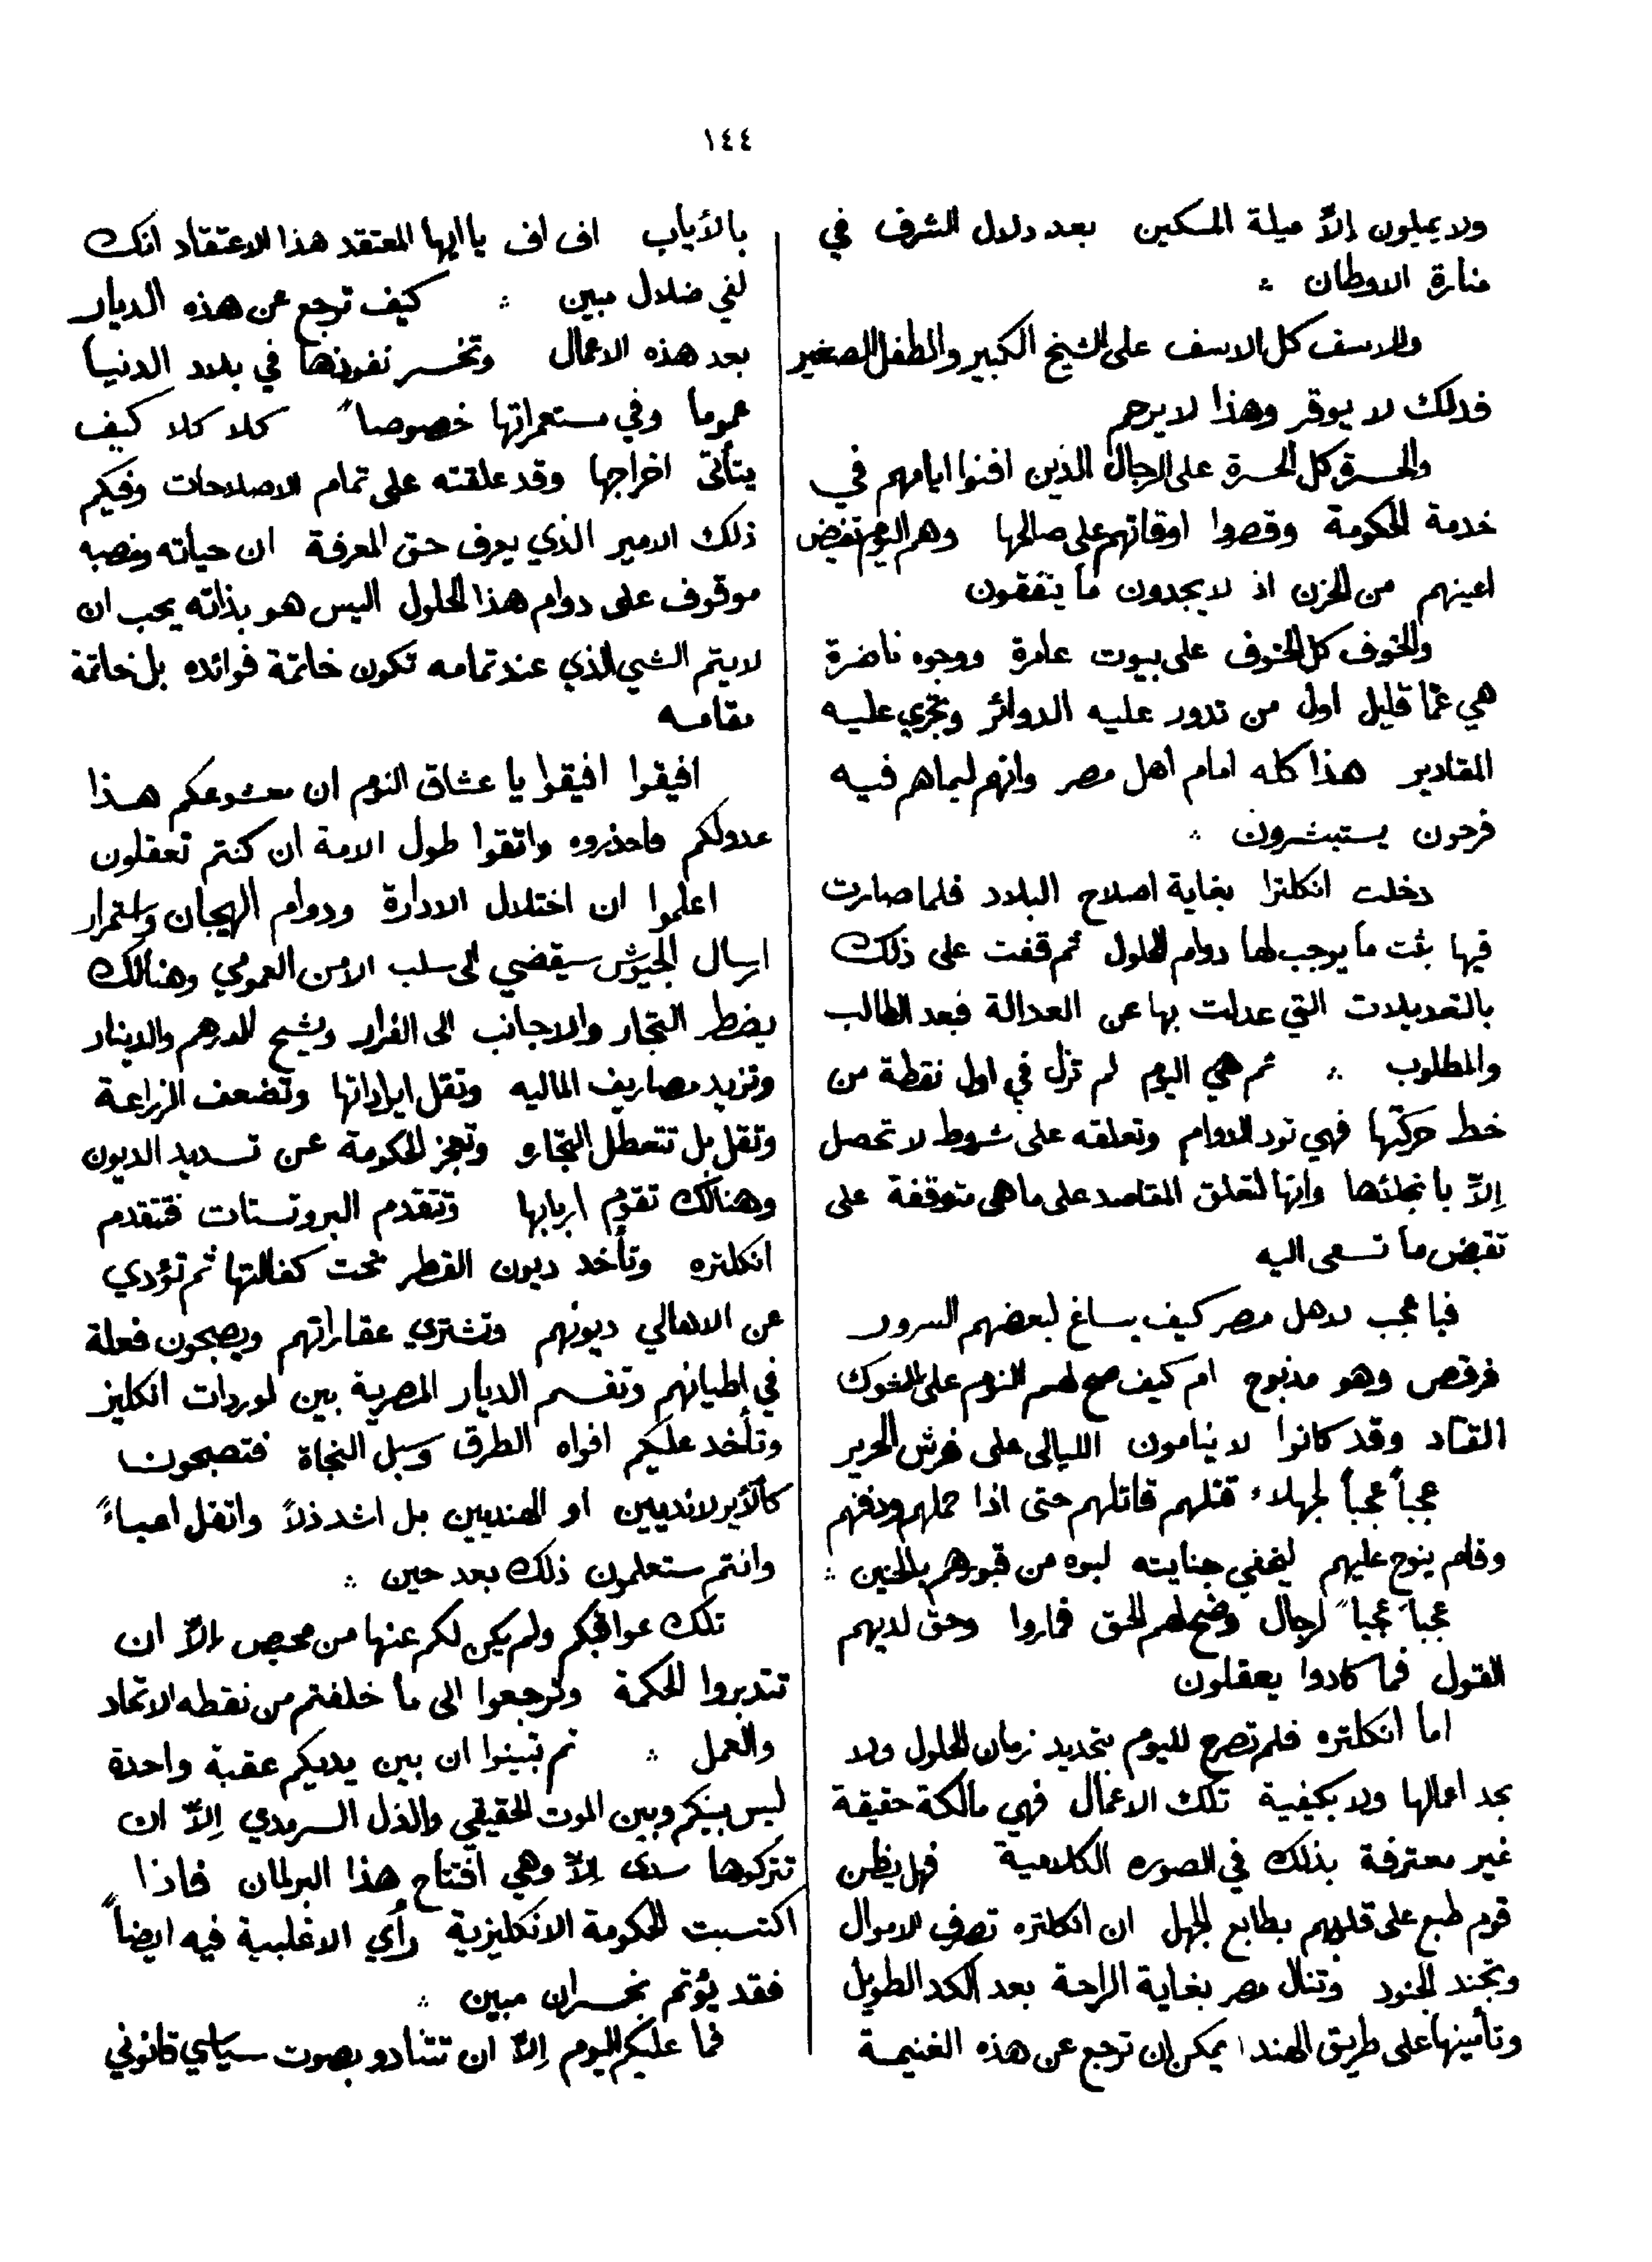 ١٤٤
ولا يميلون إلاّ ميلة المسكين بعد دلال الشرف في
منارة الاوطان ؞
والاسف كل الاسف على الشيخ الكبير والطفل الصغير
فذلك لا يوقر وهذا لا يرحم
والحسرة كل الحسرة على الرجال الذين افنوا ايامهم في
خدمة الحكومة وقصروا اوقاتهم على صالحها وهم اليوم تفيض
اعينهم من الحزن اذ لا يجدون ما ينفقون
والخوف كل الخوف على بيوت عامرة ووجوه ناضرة
هي عمّا قليل اول من تدور عليه الدوائر وتجري عليه
المقادير هذا كله امام اهل مصر وانهم لبما هم فيه
فرحون يستبشرون ؞
دخلت انكلترا بغاية اصلاح البلاد فلما صارت
فيها بثت ما يوجب لها دوام الحلول ثم قفت على ذلك
بالتعديلات التي عدلت بها عن العدالة فبعد الطالب
والمطلوب ؞ ثم هي اليوم لم تزل في اول نقطة من
خط حركتها فهي تود الدوام وتعلقه على شروط لا تحصل
إلاّ بانجلائها وانها لتعلق المقاصد على ما هي متوقفة على
نقيض ما تسعى اليه
فيا عجب لاهل مصر كيف يساغ لبعضهم السرور
فرقص وهو مذبوح ام كيف صح لهم النوم على الشوك
القتاد وقد كانوا لا ينامون الليالي على فرش الحرير
عجباً عجباً لجهلاء قتلهم قاتلهم حتى اذا حملهم ودفنهم
وقام ينوح عليهم ليخفي جنايته لبوه من قبورهم بالحنين ؞
عجباً عجباً لرجال وضح لهم الحق فماروا وحق لديهم
القول فما كادوا يعقلون
اما انكلتره فلم تصرح لليوم بتحديد زمان الحلول ولا
بحد اعمالها ولا بكيفية تلك الاعمال فهي مالكة حقيقة
غير معترفة بذلك في الصوره الكلامية فهل يظن
قوم طبع على قلوبهم بطابع الجهل ان انكلتره تصرف الاموال
وتجند الجنود وتنال مصر بغاية الراحة بعد الكد الطويل
وتأمينها على طريق الهند ايمكن ان ترجع عن هذه الغنيمة
بالأياب اف اف يا ايها المعتقد هذا الاعتقاد انك
لفي ضلال مبين ؞ كيف ترجع عن هذه الديار
بعد هذه الاعمال وتخسر نفوذها في بلاد الدنيا
عموما وفي مستعمراتها خصوصاً كلا كلا كيف
يتأتى اخراجها وقد علقته على تمام الاصلاحات وفيكم
ذلك الامير الذي يعرف حق المعرفة ان حياته ومنصبه
موقوف على دوام هذا الحلول اليس هو بذاته يحب ان
لا يتم الشي الذي عند تمامه تكون خاتمة فوائده بل خاتمة
مقامه
افيقوا افيقوا يا عشاق النوم ان معشوقكم هذا
عدو لكم فاحذروه واتقوا طول الامة ان كنتم تعقلون
اعلموا ان اختلال الادارة ودوام الهيجان واستمرار
ارسال الجيوش سيقضي الى سلب الامن العمومي وهنالك
يضطر التجار والاجانب الى الفرار ويشح الدرهم والدينار
وتزيد مصاريف الماليه وتقل ايراداتها وتضعف الزراعة
وتقل بل تتعطل التجاره وتعجز الحكومة عن تسديد الديون
وهنالك تقوم اربابها وتتقدم البروتستات فتتقدم
انكلتره وتأخذ ديون القطر تحت كفالتها ثم تؤدي
عن الاهالي ديونهم وتشتري عقاراتهم ويصبحون فعلة
في اطيانهم وتقسم الديار المصرية بين لوردات انكليز
وتأخذ عليكم افواه الطرق وسبل النجاة فتصبحون
كالأيرلانديين او الهنديين بل اشد ذلاً واثقل اعباءً
وانتم ستعلمون ذلك بعد حين ؞
تلك عواقبكم ولم يكن لكم عنها من محيص إلاّ ان
تتدبروا الحكمة وترجعوا الى ما خلفتم من نقطه الاتحاد
والعمل ؞ ثم تبينوا ان بين يديكم عقبة واحدة
ليس بينكم وبين الموت الحقيقي والذل السرمدي إلاّ ان
تتركوها سدى إلاّ وهي افتتاح هذا البرلمان فاذا
اكتسبت الحكومة الانكليزية رأي الاغلبية فيه ايضاً
فقد بؤتم بخسران مبين ؞
فما عليكم اليوم إلاّ ان تتنادو بصوت سياسي قانوني